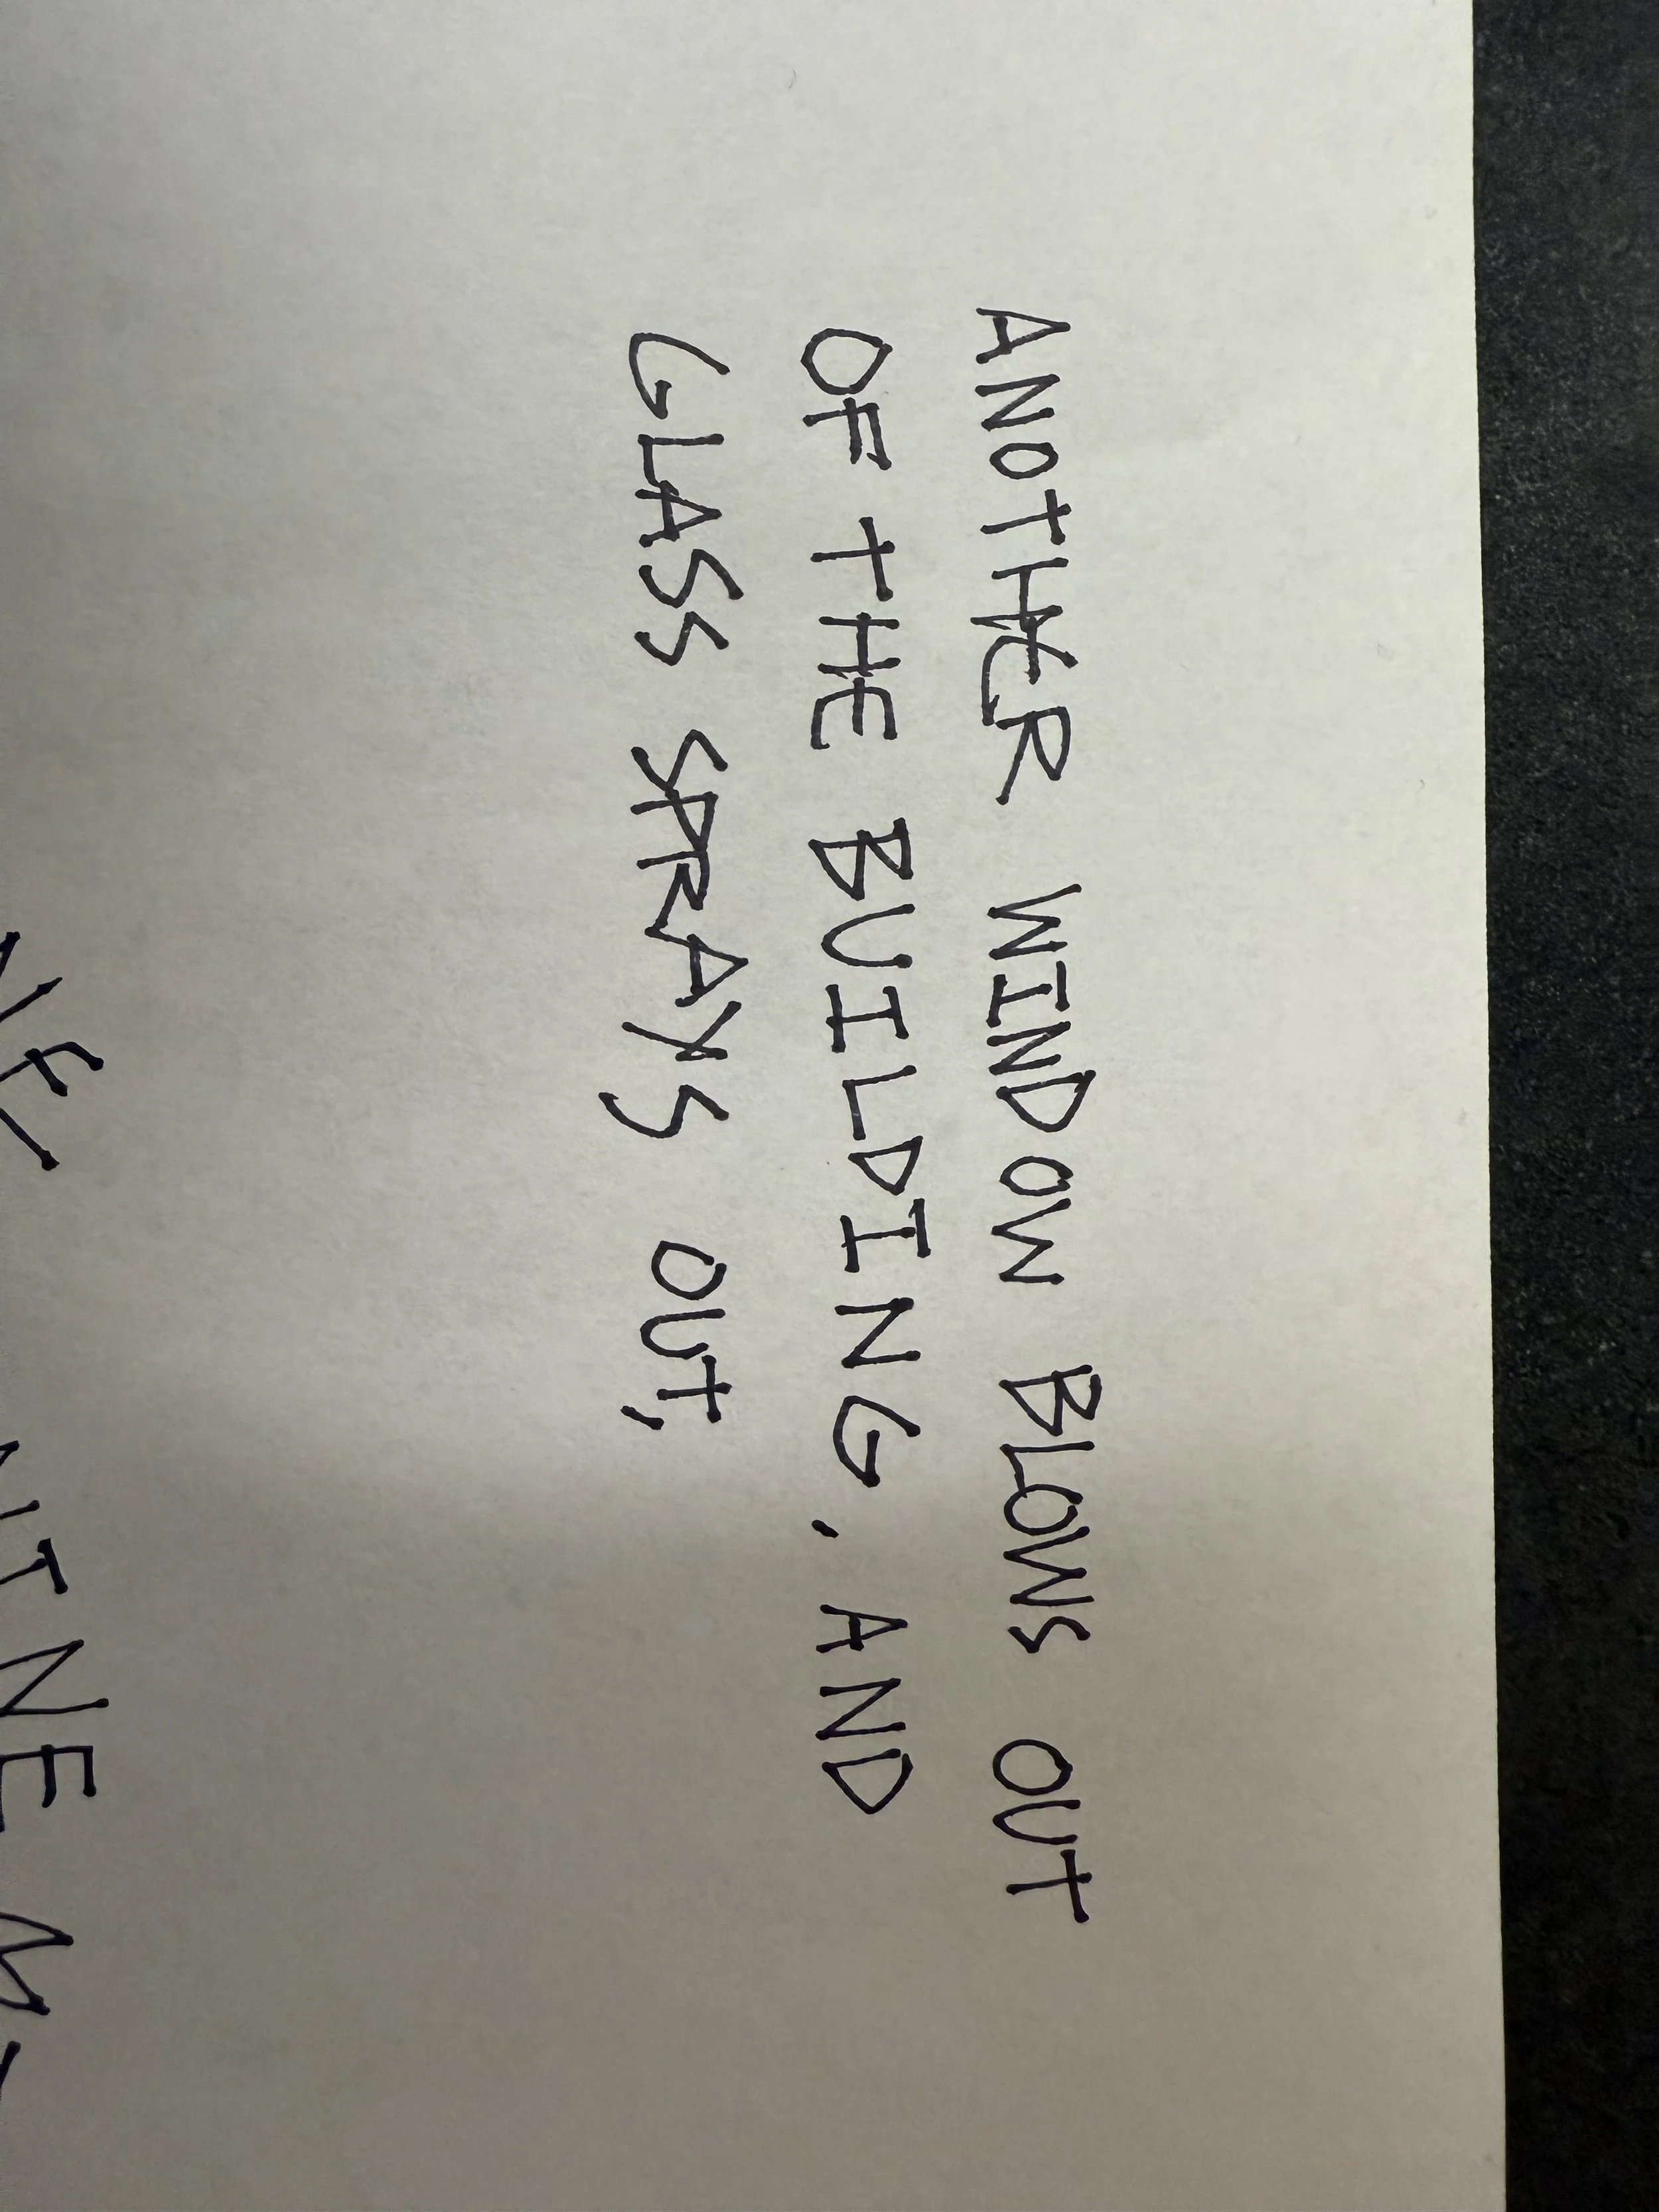 ANOTHER WINDOW BLOWS OUT
OF THE BUILDING, AND
GLASS SPRAYS OUT,